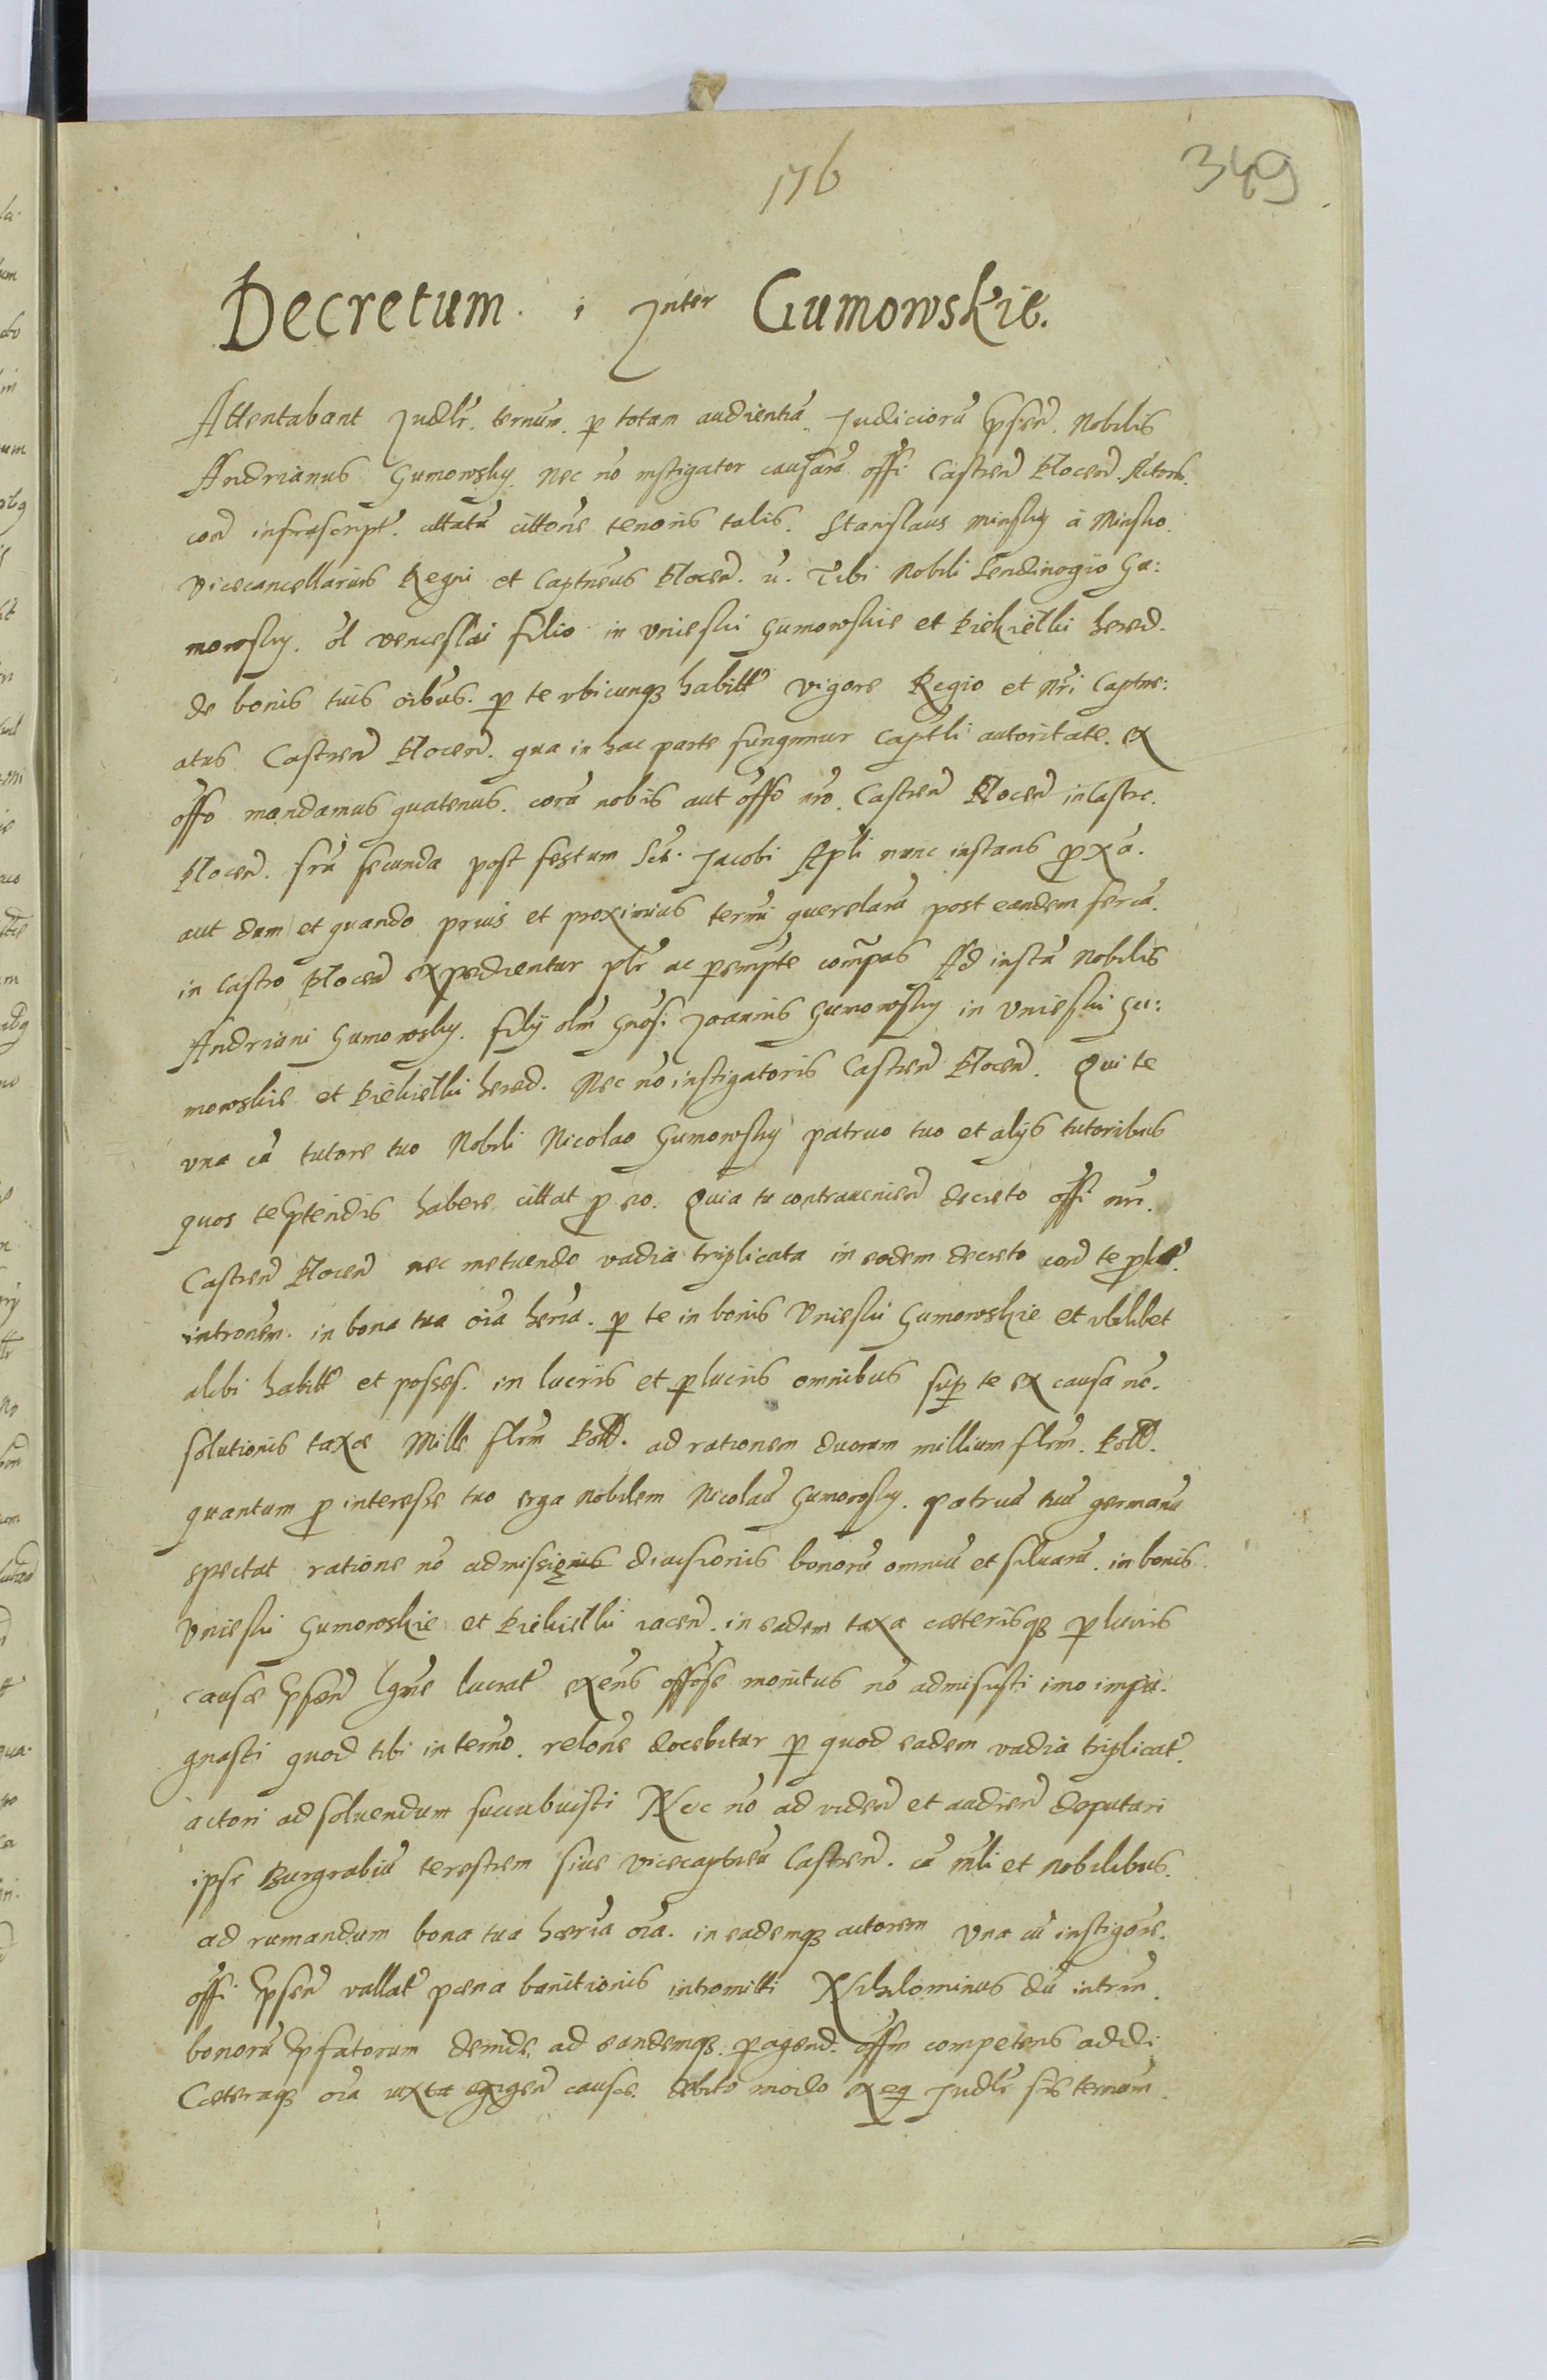 176
349
Decretum. inter Gumowskie.
Attentabant Judlr. termũm. p totam audientiã. Judiciorũ pñsen. Nobilis
Andrianus Gumowsky. Nec nõ instigator causarũ offi. Castren Plocen. Actores.
con infrascript. cittatũ cittone tenoris talis. Stanislaus Minsky à Minsko.
Vicecancellarius Regni et Captneus Plocen. Tibi Nobili Gu:
mowsky. ol Venceslai filio in Vnieski Gumowskie et Piekielki hered.
de bonis tuis oibus. p te vbicunq habitt vigore Regio et nri Captne:
atus Castren Plocen. qua in hac parte fungimur Captli autoritate. ex
offo mandamus quatenus. corã nobis aut offo nro. Castren Plocen in Castro.
Plocen. friã secunda post festum Sct. Jacobi Apli nunc instans pxã.
aut dum et quando prius et proximius termi querelarũ post eandem feriã.
in Castro Plocen expedientur plr ac perempte compas Ad instã Nobilis
Andriani Gumowsky. filij olm Gnosi Joannis Gumowsky in Vnieski Gu:
mowskie et Piekielki hered. Nec nõ instigatoris Castren Plocen. Qui te
vna cũ tutore tuo Nobili Nicolao Gumowsky patruo tuo et alijs tutoribus
quos te ptendis habere, cittat p eo. Quia tu contravenien decreto offi nri.
Castren Plocen nec metuendo vadia triplicata in eodem decreto con te
intronem. in bona tua oia heria. p te in bonis Vnieski Gumowskie et vbilibet
alibi habitt et posses. in lucris et plucris omnibus sup te ex causa nõ.
solutionis taxæ Mille flrm Poll. ad rationem duorum millium flrm. Poll.
quantum p interesse tuo erga Nobilem Nicolaũ Gumowsky. patruũ tuũ germanũ
spectat ratione nõ admissionis divisionis bonorũ omniũ et silvarũ. in bonis
Vnieski Gumowskie et Piekielki iacen. in eadem taxa cæterisq plucris
causæ pñsen lucrat exens offose monitus nõ admisisti imo impu.
gnasti quod tibi in termo. relone docebitur p quod eadem vadia triplicat.
actori ad solvendum succubuisti Nec nõ ad viden et audien deputari
ipse Burgrabiũ terestrem sive Vicecaptneũ Castren. cũ mli et nobilibus.
ad rumandum bona tua hæria oia. in eademq actorem Vna cũ instigore.
offi pñsen vallat pæna banitionis intromitti Nihilominus dũ intrm.
bonorũ pfatorum deinde, ad eandemq. pagend. offm competens addi
Cæteraq oia iuxta exigen causæ. debito modo exeq Judlr sis termum.